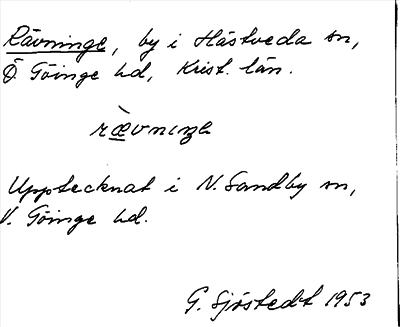 Rävninge, by i Hästveda sn,
Ö. Göinge hd, Krist. län.
rævninge
Upptecknat i N. Sandby sn,
V. Göinge hd.
G. Sjöstedt 1953